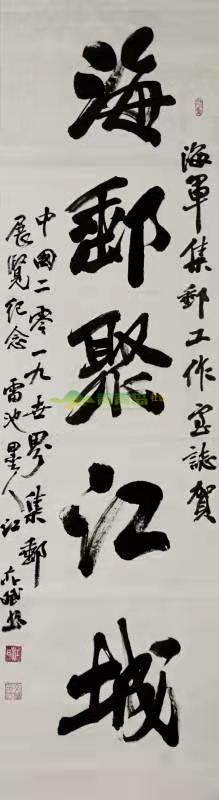 海軍集郵工作室誌賀
海郵聚江城
中國二零一九世界集郵
展覽紀念 雷池星人 江